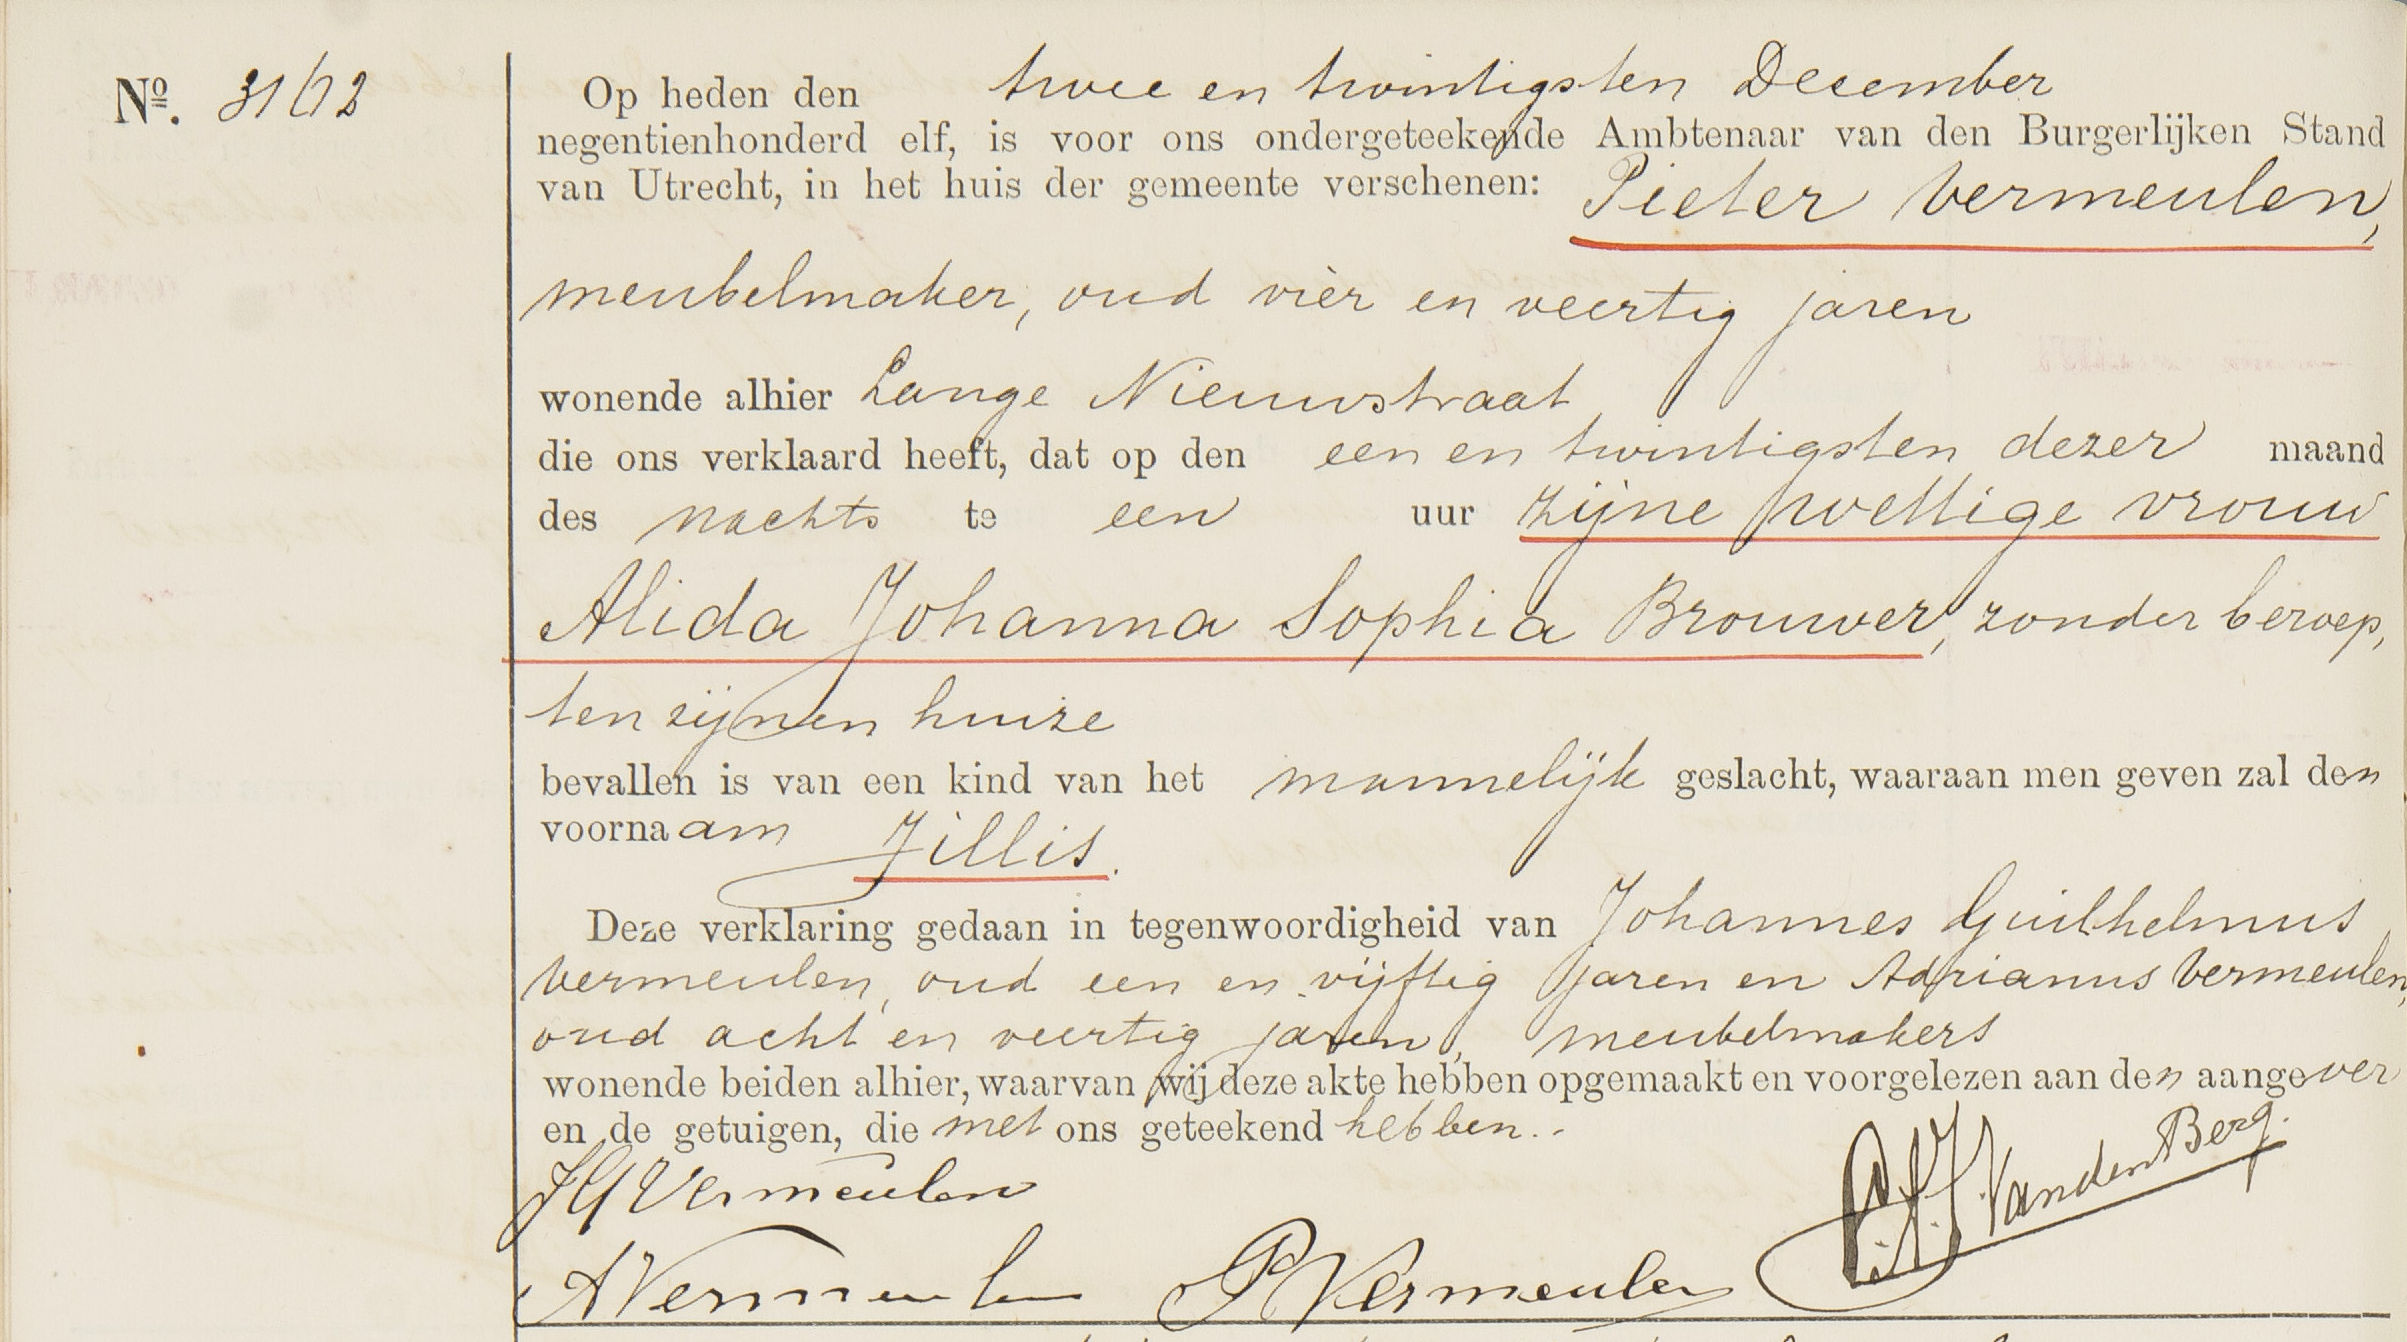 Nº. 3162
Op heden den twee en twintigsten December
negentienhonderd elf, is voor ons ondergeteekende Ambtenaar van den Burgerlijken Stand
van Utrecht, in het huis der gemeente verschenen: Pieter Vermeulen,
meubelmaker, oud vier en veertig jaren
wonende alhier Lange Nieuwstraat
die ons verklaard heeft, dat op den een en twintigsten dezer maand
des nachts te een uur zijne wettige vrouw
Alida Johanna Sophia Brouwer, zonder beroep,
ten zijnen huize
bevallen is van een kind van het mannelijk geslacht, waaraan men geven zal den
voornaam Jillis.
Deze verklaring gedaan in tegenwoordigheid van Johannes Guilhelmus
Vermeulen, oud een en vijftig jaren en Adrianus Vermeulen,
oud acht en veertig jaren, meubelmakers
wonende beiden alhier, waarvan wij deze akte hebben opgemaakt en voorgelezen aan den aangever
en de getuigen, die met ons geteekend hebben..
JGVermeulen
AVermeulen PVermeulen VandenBerg.